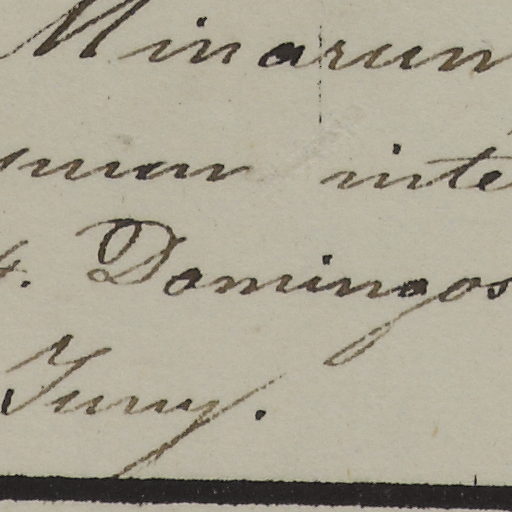 Minarum
man inte
4. Domingos
Jury.